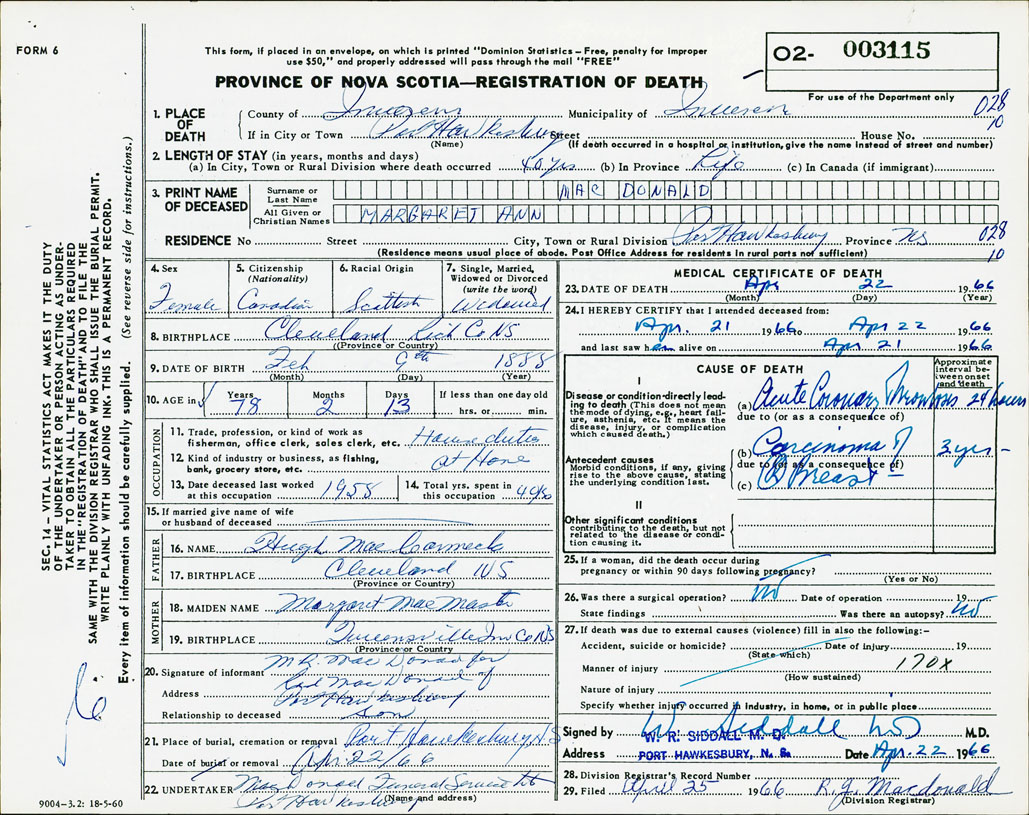 FORM 6
This form, if placed in an envelope, on which is printed "Dominion Statistics – Free, penalty for improper
use $50," and properly addressed will pass through the mail "FREE"
PROVINCE OF NOVA SCOTIA—REGISTRATION OF DEATH
O2- 003115
For use of the Department only
028
10
1. PLACE OF DEATH
County of Inverness Municipality of Inverness
If in City or Town Port Hawkesbury Street House No.
(Name) (If death occurred in a hospital or institution, give the name instead of street and number)
2. LENGTH OF STAY (in years, months and days)
(a) In City, Town or Rural Division where death occurred 40 yrs (b) In Province Life (c) In Canada (if immigrant)
3. PRINT NAME OF DECEASED
Surname or Last Name MAC DONALD
All Given or Christian Names MARGARET ANN
RESIDENCE No Street City, Town or Rural Division Port Hawkesbury Province NS
028
10
(Residence means usual place of abode. Post Office Address for residents in rural parts not sufficient)
4. Sex
Female
5. Citizenship
(Nationality)
Canadian
6. Racial Origin
Scottish
7. Single, Married, Widowed or Divorced
(write the word)
Widowed
8. BIRTHPLACE Cleveland Rich Co NS
(Province or Country)
9. DATE OF BIRTH Feb 9th 1888
(Month) (Day) (Year)
10. AGE in
Years Months Days If less than one day old
78 2 13 hrs. or min.
OCCUPATION
11. Trade, profession, or kind of work as
fisherman, office clerk, sales clerk, etc. House duties
12. Kind of industry or business, as fishing,
bank, grocery store, etc. at Home
13. Date deceased last worked
at this occupation 1958
14. Total yrs. spent in
this occupation 40 yrs
15. If married give name of wife
or husband of deceased
FATHER
16. NAME Hugh Mac Cormack
17. BIRTHPLACE Cleveland NS
(Province or Country)
MOTHER
18. MAIDEN NAME Margaret MacMaster
19. BIRTHPLACE Queensville Inv Co NS
(Province or Country)
20. Signature of informant M.R. Mac Donald for
Mac Donald
Address Port Hawkesbury
Relationship to deceased son
21. Place of burial, cremation or removal Port Hawkesbury, NS
Date of burial or removal Apr. 22/66
22. UNDERTAKER Mac Donald Funeral Service
Port Hawkesbury
(Name and address)
9004–3.2: 18-5-60
MEDICAL CERTIFICATE OF DEATH
23. DATE OF DEATH Apr 22 1966
(Month) (Day) (Year)
24. I HEREBY CERTIFY that I attended deceased from:
Apr. 21 1966 to Apr 22 1966
and last saw her alive on Apr 21 1966
CAUSE OF DEATH
Approximate interval between onset and death
I
Disease or condition directly leading to death (This does not mean the mode of dying, e.g., heart failure, asthenia, etc. It means the disease, injury, or complication which caused death.)
(a) Acute Coronary Thrombosis 24 hours
due to (or as a consequence of)
Antecedent causes
Morbid conditions, if any, giving rise to the above cause, stating the underlying condition last.
(b) Carcinoma of 3 yrs –
due to (or as a consequence of)
(c) Breast –
II
Other significant conditions
contributing to the death, but not related to the disease or condition causing it.
25. If a woman, did the death occur during
pregnancy or within 90 days following pregnancy?
(Yes or No)
26. Was there a surgical operation? NO Date of operation 19
State findings Was there an autopsy? NO
27. If death was due to external causes (violence) fill in also the following:–
Accident, suicide or homicide? Date of injury 19
(State which)
Manner of injury 170X
(How sustained)
Nature of injury
Specify whether injury occurred in industry, in home, or in public place
Signed by W R Siddall MD M.D.
W. R. SIDDALL M. D.
Address PORT HAWKESBURY, N. S. Date Apr. 22 1966
28. Division Registrar's Record Number
29. Filed April 25 1966 R.J. Macdonald
(Division Registrar)
SEC. 14 – VITAL STATISTICS ACT MAKES IT THE DUTY
OF THE UNDERTAKER OR PERSON ACTING AS UNDER-
TAKER TO OBTAIN ALL THE PARTICULARS REQUIRED
IN THE "REGISTRATION OF DEATH" AND TO FILE THE
SAME WITH THE DIVISION REGISTRAR WHO SHALL ISSUE THE BURIAL PERMIT.
WRITE PLAINLY WITH UNFADING INK. THIS IS A PERMANENT RECORD.
Every item of information should be carefully supplied. (See reverse side for instructions.)